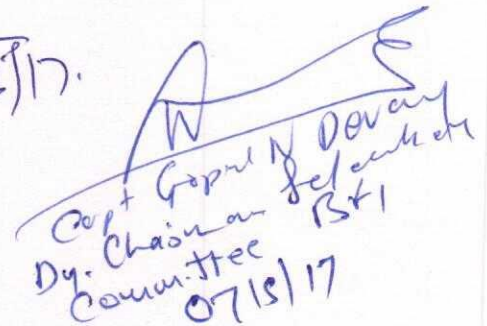 /17.
Capt Gopal N Devang
Dy. Chairman Selection
Committee BFI
07/5/17